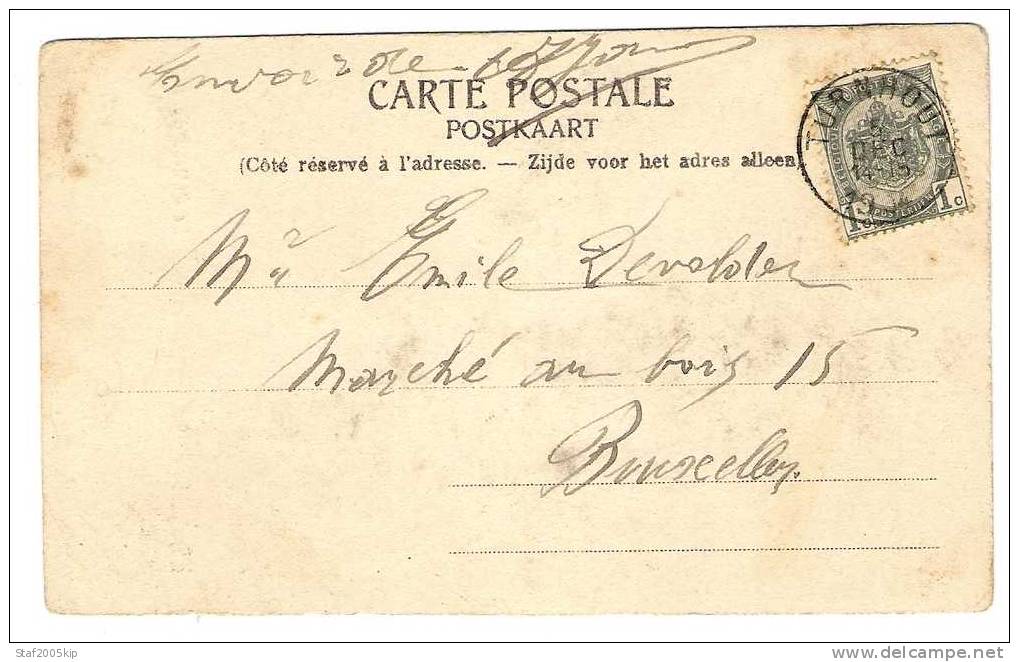 Envoi de
CARTE POSTALE
POSTKAART
(Côté réservé à l'adresse. — Zijde voor het adres alleen
TURNHOUT
5
DEC
14-15
1 c 1 c
Mr Emile Devolder
Marché au bois 15
Bruxelles
Staf2005kip
delcampe.net